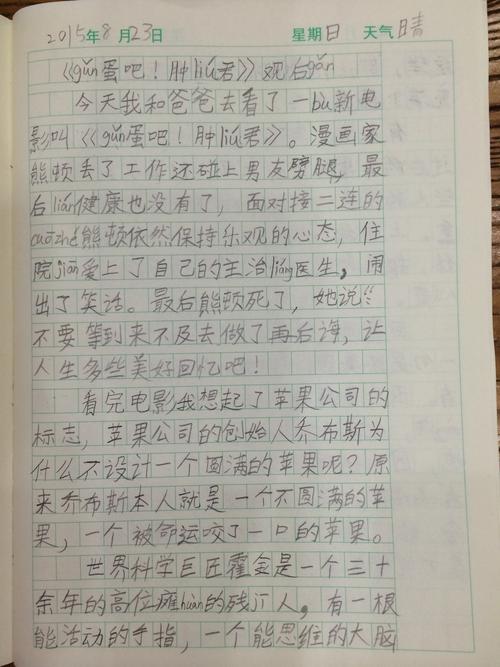 2015年8月23日 星期日 天气晴
《gǔn蛋吧！肿liú君》观后gǎn
今天我和爸爸去看了一bù新电
影叫《gǔn蛋吧！肿liú君》。漫画家
熊顿丢了工作还碰上男友劈腿，最
后lián健康也没有了，面对接二连的
cuòzhé熊顿依然保持乐观的心态，住
院jiān爱上了自己的主治liáng医生，闹
出了笑话。最后熊顿死了，她说“
不要等到来不及去做了再后诲，让
人生多些美好回忆吧！
看完电影我想起了苹果公司的
标志，苹果公司的创始人乔布斯为
什么不设计一个圆满的苹果呢？原
来乔布斯本人就是一个不圆满的苹
果，一个被命运咬了一口的苹果。
世界科学巨匠霍金是一个三十
余年的高位瘫huàn的残人，有一根
能活动的手指，一个能思维的大脑